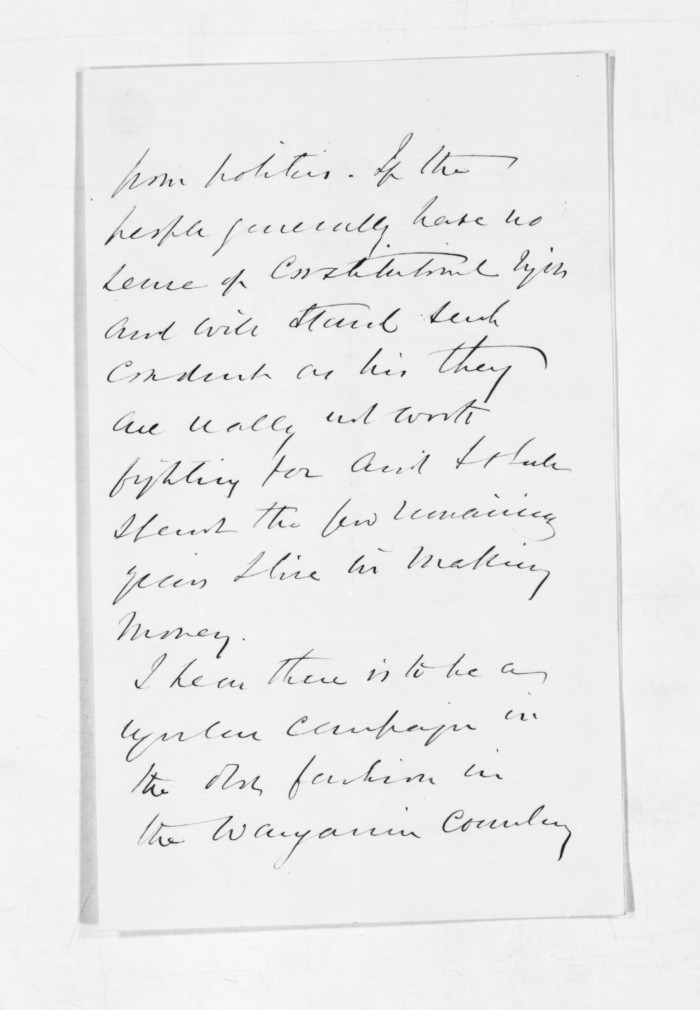 from politics. If the
people generally have no
sense of Constitutional rights
and will stand such
conduct as his they
are really not worth
fighting for and I shall
spend the few remaining
years I live in making
money.
I hear there is to be a
regular campaign in
the old fashion in
the Wanganui Country